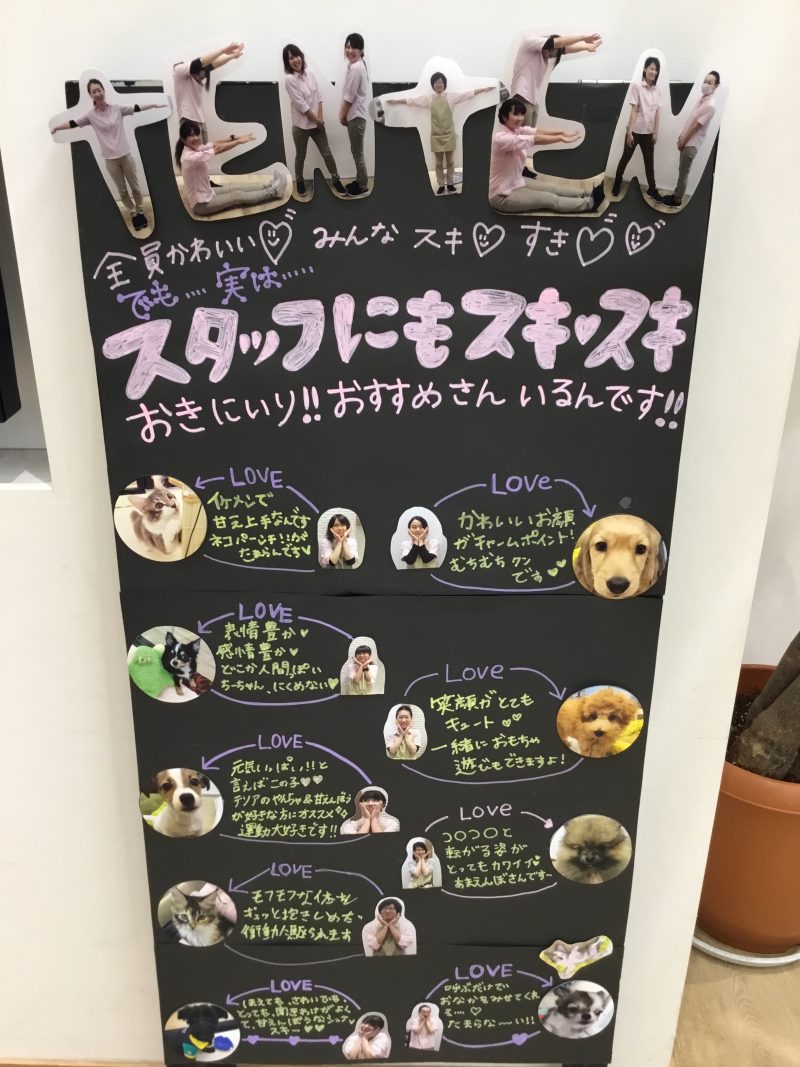 TENTEN
全員かわいい♡ みんな スキ♡ すき♡♡
でも‥‥実は‥‥‥
スタッフにもスキ♥スキ
おきにいり!!おすすめさん いるんです!!
LOVE
イケメンで
甘え上手なんです
ネコパーンチ!!が
たまらんです♥
Love
かわいいお顔
がチャームポイント!
むちむち クン
です♥♥
LOVE
表情豊か♥
感情豊か♥
どこか人間っぽい
ちーちゃん、にくめない♥
Love
笑顔がとても
キュート ♥♥
一緒におもちゃ
遊びもできますよ!!
LOVE
元気いっぱい!!と
言えばこの子♥♥
テソアのやんちゃ&甘えんぼう
が好きな方にオススメ
運動大好きです!!
Love
コロコロと
転がる姿が
とってもカワイイ♥
あまえんぼさんですー
LOVE
モフモフな体を
ギュッと抱きしめたい
衝動に駆られます
LOVE
とっても、聞きわけがよく
て、甘えんぼうな
スキ…♥♥
LOVE
呼ぶだけで
おなかをみせてくれ
る…♡
たまらな〜い!!